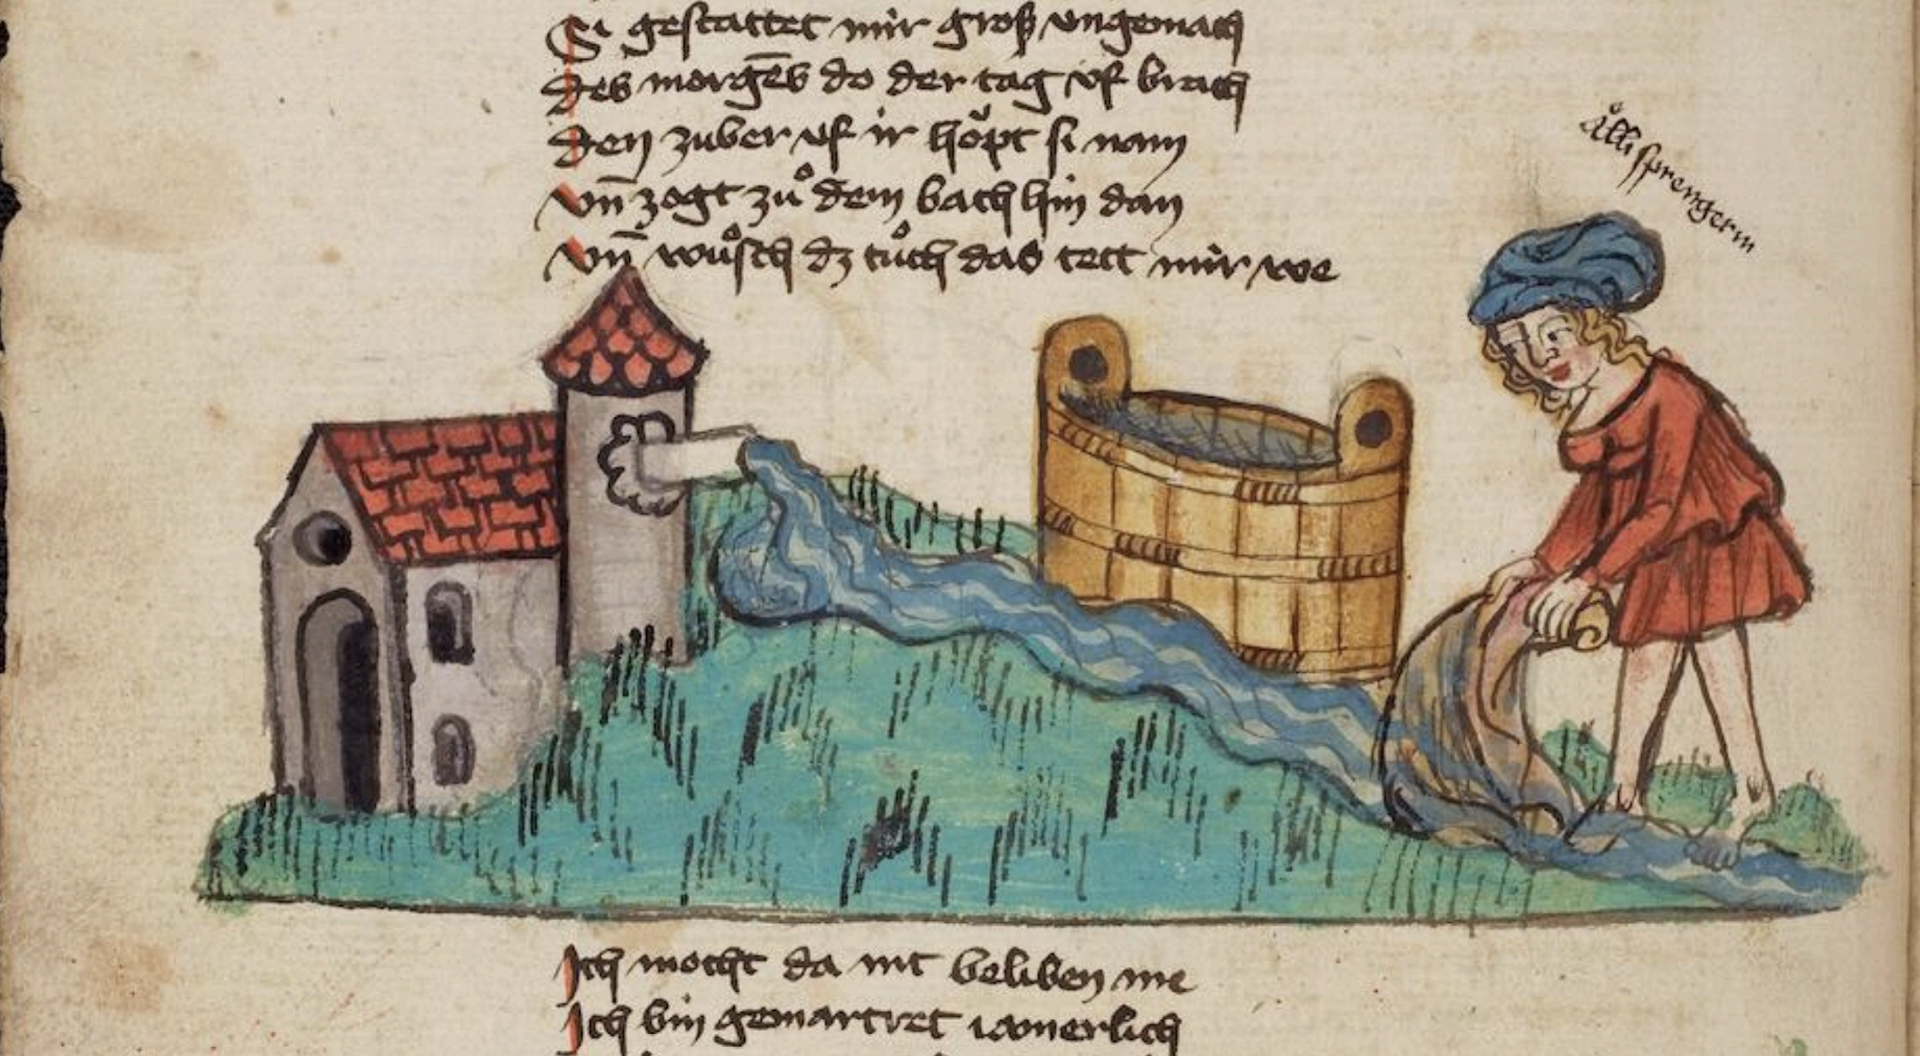 Si gestattet mir groß ungemach
Des morgēs do der tag uf brach
Den zuber uf ir hŏpt si nam
Vn̄ zogt zů dem bach hin dan
Vn̄ wůsch dz tůch das tett mir we
älli sprengerin
Ich mocht da nit beliben me
Ich bin gemartret iamerlich